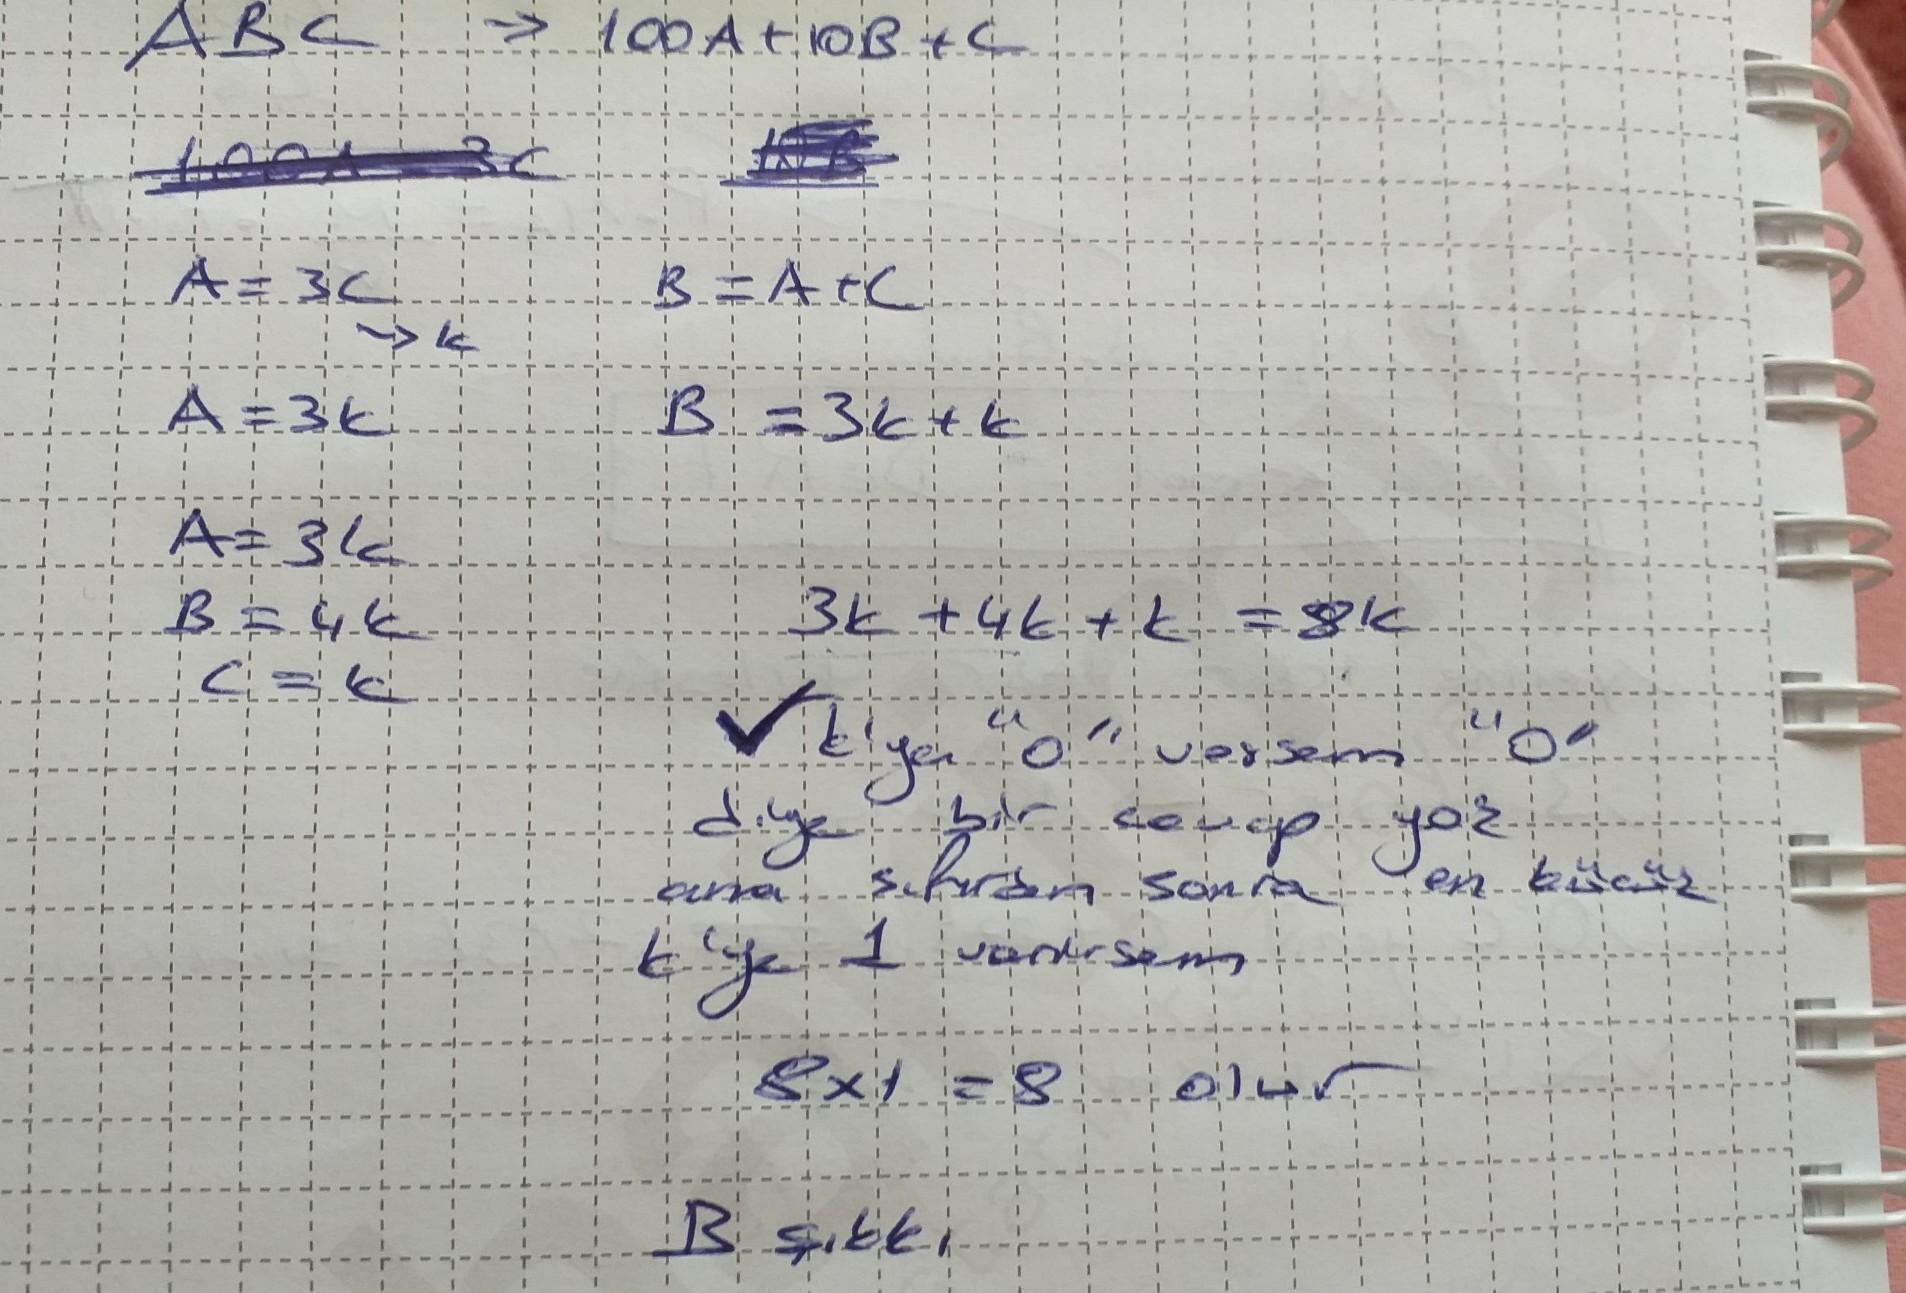 ABC → 100A + 10B + C
A = 3C B = A + C
→ k
A = 3k B = 3k + k
A = 3k
B = 4k 3k + 4k + k = 8k
C = k
✓ k'ya "0" versem "0"
diye bir cevap yok
ama sıfırdan sonra en küçük
k'ye 1 verirsem
8x1 = 8 olur
B şıkkı